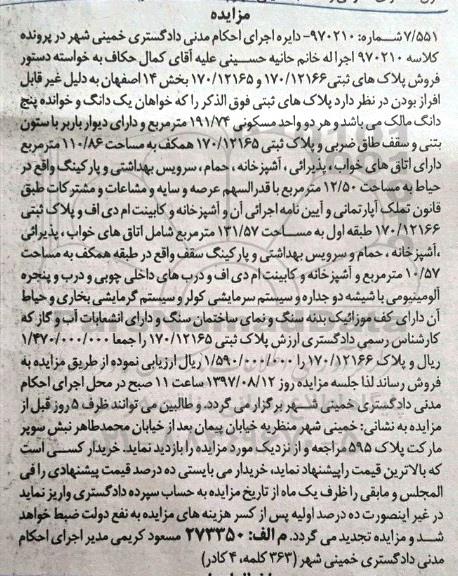 مزایده
۷/۵۵۱ شماره: ۹۷۰۲۱۰- دایره اجرای احکام مدنی دادگستری خمینی شهر در پرونده
کلاسه ۹۷۰۲۱۰ اجرا له خانم حانیه حسینی علیه آقای کمال حکاف به خواسته دستور
فروش پلاک های ثبتی ۱۷۰/۱۲۱۶۶ و ۱۷۰/۱۲۱۶۵ بخش ۱۴ اصفهان به دلیل غیر قابل
افراز بودن در نظر دارد پلاک های ثبتی فوق الذکر را که خواهان یک دانگ و خوانده پنج
دانگ مالک می باشد و هر دو واحد مسکونی ۱۹۱/۷۴ مترمربع و دارای دیوار باربر با ستون
بتنی و سقف طاق ضربی و پلاک ثبتی ۱۷۰/۱۲۱۶۵ همکف به مساحت ۱۱۰/۸۶ مترمربع
دارای اتاق های خواب، پذیرائی ، آشپزخانه ، حمام ، سرویس بهداشتی و پارکینگ واقع در
حیاط به مساحت ۱۲/۵۰ مترمربع با قدرالسهم عرصه و سایه و مشاعات و مشترکات طبق
قانون تملک آپارتمانی و آیین نامه اجرائی آن و آشپزخانه و کابینت ام دی اف و پلاک ثبتی
۱۷۰/۱۲۱۶۶ طبقه اول به مساحت ۱۳۱/۵۷ مترمربع شامل اتاق های خواب ، پذیرائی
،آشپزخانه ، حمام و سرویس بهداشتی و پارکینگ سقف واقع در طبقه همکف به مساحت
۱۰/۵۷ مترمربع و آشپزخانه و کابینت ام دی اف و درب های داخلی چوبی و درب و پنجره
آلومینیومی با شیشه دو جداره و سیستم سرمایشی کولر و سیستم گرمایشی بخاری و حیاط
آن دارای کف موزائیک بدنه سنگ و نمای ساختمان سنگ و دارای انشعابات آب و گاز که
کارشناس رسمی دادگستری ارزش پلاک ثبتی ۱۷۰/۱۲۱۶۵ را جمعا ۱/۴۷۰/۰۰۰/۰۰۰
ریال و پلاک ۱۷۰/۱۲۱۶۶ را ۱/۵۹۰/۰۰۰/۰۰۰ ریال ارزیابی نموده از طریق مزایده به
فروش رساند لذا جلسه مزایده روز ۱۳۹۷/۰۸/۱۲ ساعت ۱۱ صبح در محل اجرای احکام
مدنی دادگستری خمینی شهر برگزار می گردد. و طالبین می توانند ظرف ۵ روز قبل از
مزایده به نشانی: خمینی شهر منظریه خیابان پیمان بعد از خیابان محمدطاهر نبش سوپر
مارکت پلاک ۵۹۵ مراجعه و از نزدیک مورد مزایده را بازدید نماید. خریدار کسی است
که بالاترین قیمت را پیشنهاد نماید، خریدار می بایستی ده درصد قیمت پیشنهادی را فی
المجلس و مابقی را ظرف یک ماه از تاریخ مزایده به حساب سپرده دادگستری واریز نماید
در غیر اینصورت ده درصد اولیه پس از کسر هزینه های مزایده به نفع دولت ضبط خواهد
شد و مزایده تجدید می گردد. م الف: ۲۷۳۳۵۰ مسعود کریمی مدیر اجرای احکام
مدنی دادگستری خمینی شهر (۳۶۳ کلمه، ۴ کادر)